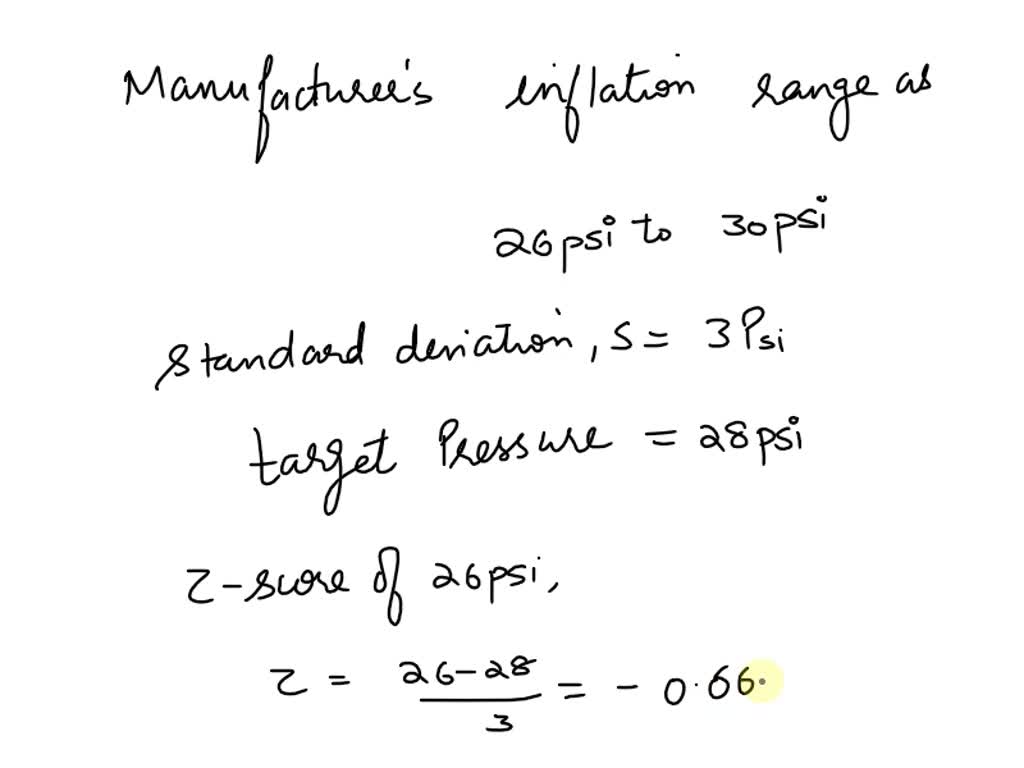 Manufacturee's inflation range as
26psi to 30psi
standard deviation, s = 3Psi
target Pressure = 28psi
z-score of 26psi,
z = 26-28/3 = - 0.66